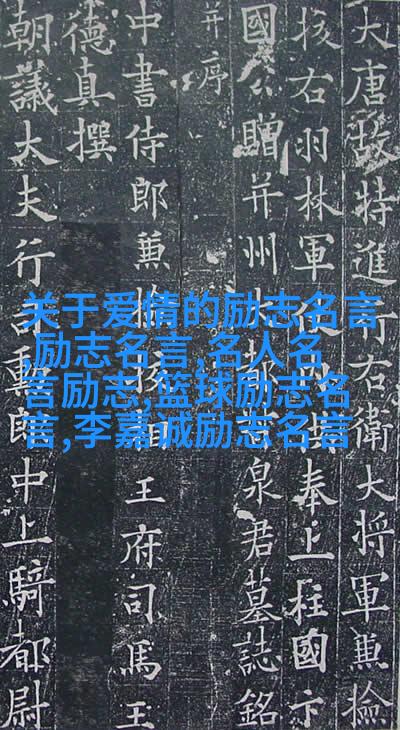 大唐故特進行右衛大將軍兼檢
校右羽林軍奉上柱國卞
國公贈并州泉君墓誌銘
并序
中書侍郎兼王府司馬王
德真撰
朝議大夫行勳郎中上騎都尉
关于爱情的励志名言
,励志名言,名人名
言励志,篮球励志名
言,李嘉诚励志名言